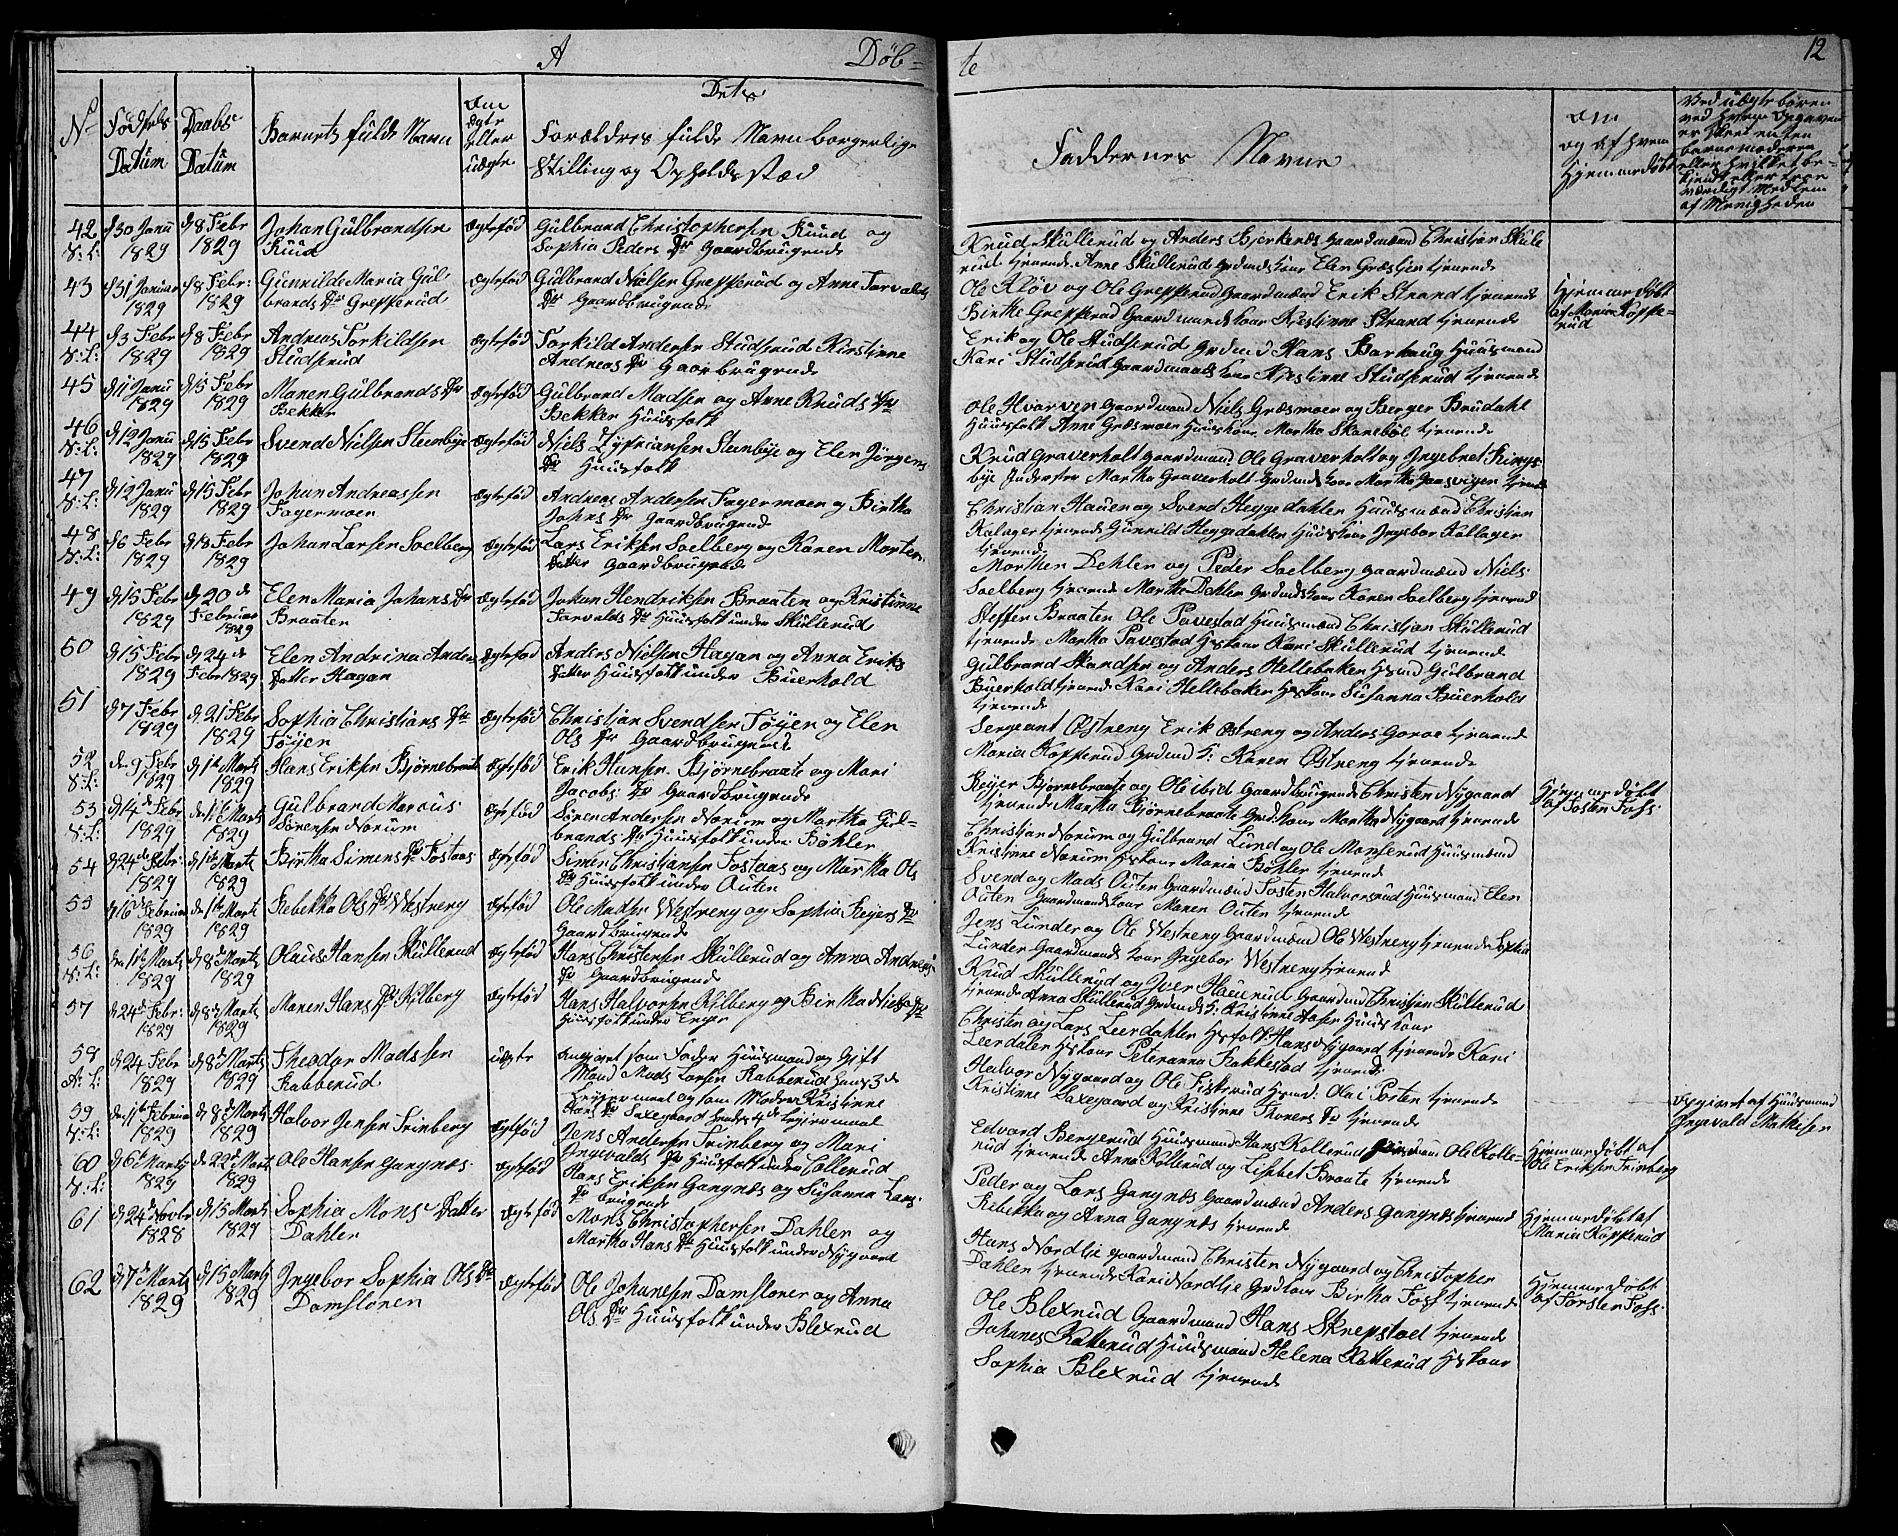 A
Døb=
te
12
No
Fødsels Datum
Daabs Datum
Barnets fulde Navn
Om ægte eller uægte
Dets
Forældres fulde Navn borgerlige
Stilling og Opholds stæd
Faddernes Navne
Om og af hvem Hjemmedøbt
42 d 30 Janu 1829 d 8 Febr 1829 Johan Gulbrandsen Ruud ægtefød Gulbrand Christophersen Ruud og
Sophia Peders Dtr Gaardbrugende
Knud Skullerud og Anders Bjerkenæs Gaardmænd Christian Skulle
rud tjenende Anne Skullerud
43 d 31 Januar 1829 d 8 Febr: 1829 Gunnilde Maria Gul
brands Dtr Grepperud ægtefød Gulbrand Nielsen Grepperud og Anne Torvalds
Dtr Gaardbrugende
Ole Kløv og Ole Grepperud Gaardmænd Erik Strand tjenende
Birthe Grepperud Gaardmandskone Kristinne Strand tjenende
Hjemmedøbt
af Maria Koppe=
rud
44 d 3 Febr 1829 d 8 Febr 1829 Andreas Torkildsen
Studsrud ægtefød Torkild Andersen Studsrud Kirstinne
Andreas Dtr Gaarbrugende
Erik og Ole Studsrud Grdmd Hans Barhaug Huusmand
Kari Studsrud Gaardmands kone Kjestinne Studsrud tjenende
45 d 11 Janu 1829 d 15 Febr 1829 Maren Gulbrands Dtr
Bekker ægtefød Gulbrand Madsen og Anne Knuds Dtr
Bekker Huusfolk
Ole Hvarven Gaardmand Niels Græsmoen og Berger Brudahl
Huusfolk Anne Græsmoen Huuskone Martha Skanebøl tjenende
46 d 12 Janu 1829 d 15 Febr 1829 Svend Nielsen Steenbye ægtefød Niels Zypriansen Steenbye og Elen Jørgens
Dtr Huusfolk
Knud Graverholt Gaardmand Ole Graverholt og Ingebret Rings
bye Inderster Martha Graverholt
47 d 12 Janu 1829 d 15 Febr 1829 Johan Andreassen
Fagermoen ægtefød Andreas Andersen Fagermoen og Birtha
Johns Dtr Gaardbrugende
Christian Hauen og Svend Heggedahlen Huusmænd Christian
Kalager tjenende Gunnild Heggedahlen Huuskone Ingebor Kallager
tjenende
48 d 6 Febr 1829 d 18 Febr 1829 Johan Larsen Soelberg ægtefød Lars Eriksen Soelberg og Karen Morten
Datter Gaardbrugende
Morthen Dehlen og Peder Soelberg Gaardmænd Niels
Soelberg tjenende Marthe Dehlen Grdmdskone Karen Soelberg tjenend
49 d 15 Febr 1829 d 20 de Februar 1829 Elen Maria Johans Dtr
Braaten ægtefød Johan Hendriksen Braaten og Kristinne
Torvalds Dtr Huusfolk under Skullerud
Steffen Braaten Ole Pavestad Huusmænd Christian Skullerud
tjenende Martha Pavestad Hskone Kari Skullerud tjenende
50 d 15 Febr 1829 d 24 de Febr 1829 Elen Andrina Anders
Datter Hagan ægtefød Anders Nielsen Hagan og Anna Eriks
Datter Huusfolk under Buerhold
Gulbrand Skandsen og Anders Hellebæken Hsmd Gulbrand
Buerhold tjenende Kari Hellebaken Hskone Susanna Buerhold
tjenende
51 d 7 Febr 1829 d 21 Febr 1829 Sophia Christians Dtr
Tøyen ægtefød Christian Svendsen Tøyen og Elen
Ols Dtr Gaardbrugende
Sergeant Østreng Erik Østreng og Anders Goroe tjenende
Maria Kopperud Grdmd K: Karen Østreng tjenende
52 den 9 Febr 1829 d 1te Marts 1829 Hans Eriksen Bjørnebraate ægtefød Erik Hansen Bjørnebraate og Mari
Jacobs Dtr Gaardbrugende
Reyer Bjørnebraate og Ole ibid Gaardbrugende Christen Nygaard
tjenende Martha Bjørnebraate Grd:kone Martha Nygaard tjenende
Hjemmedøbt
af Tosten Foss
53 d 14 de Febr 1829 den 1te Marts 1829 Gulbrand Marcus
Sørensen Norum ægtefød Søren Andersen Norum og Martha Gul=
brands Dtr Huusfolk under Bøhler
Christian Norum og Gulbrand Lund og Ole Monserud Huusmænd
Kristinne Norum Hskone Maria Bøhler tjenende
54 d 24 de Febr 1829 d 1te Marts 1829 Birtha Simens Dtr Tostaas ægtefød Simen Christiansen Tostaas og Martha Ols
Dtr Huusfolk under Outen
Svend og Mads Outen Gaardmænd Tosten Halvorsrud Huusmand Elen
Outen Gaardmandskone Maren Outen tjenende
55 d 16 Februar 1829 den 1te Marts 1829 Rebekka Ols Dtr Westreng ægtefød Ole Madsen Westreng og Sophia Reyers Dtr
Gaardbrugende
Jens Lunder og Ole Westreng Gaardmænd Ole Westreng tjenende Sophia
Lunder Gaardmands kone Ingebor Westreng tjenende
56 den 1te Marts 1829 d 8de Marts 1829 Olaus Hansen Skullerud ægtefød Hans Christensen Skullerud og Anna Andreas
Dtr Gaardbrugende
Knud Skullerud og Iver Hauerud Gaardmd Christian Skullerud
57 d 24 de Febr: 1829 d 8de Marts 1829 Maren Hans Dtr Kilberg ægtefød Hans Halvorsen Kilberg og Birtha Niels Dtr
Huusfolk under Enger
Christen og Lars Leerdahlen Hsfolk Hans Nygaard tjenende Kari
Leerdalen Hskone Peteranna Bakkestad tjenende
58 d 24 Febr 1829 d 8de Marts 1829 Theodor Madssen
Rabberud uægte Angivet som Fader Huusmand og Gift
Mand Mads Larsen Rabberud hans 3 de
Leiermaal og som Moder Kristinne
Halvor Nygaard og Ole Fiskerud Hsmd: Ole i Porten tjenende
opgivet af Huusmand
Ingevald Mathisen
59 den 11te Februar 1829 d 8de Marts 1829 Halvor Jensen Trinberg ægtefød Jens Andersen Trinberg og Mari
Ingevalds Dtr Huusfolk under Collerud
Edvard Bergerud Huusmand Hans Kollerud
rud tjenende Anna Kollerud og Lisbet Braate tjenende
Hjemmedøbt af
Ole Eriksen Trinberg
60 d 6te Marts 1829 d 22de Marts 1829 Ole Hansen Gangnæs ægtefød Hans Eriksen Gangnæs og Susanna Lars
Dtr brugende
Peder og Lars Gangnæs Gaardmænd Anders Gangnæs tjenend
Rebekka og Anna Gangnæs tjenende
61 d 24 de Novbr 1828 d 15 Marts 1829 Sophia Mons Datter
Dahler ægtefød Mons Christophersen Dahler og
Martha Hans Dtr Huusfolk under Nygaard
Hans Nordlie Gaardmand Christen Nygaard og Christopher
Dahlen tjenende Kari Nordlie Grdkone Birtha Foss tjenende
Hjemmedøbt af
Maria Kopperud
62 d 7de Marts 1829 d 15 Marts 1829 Ingebor Sophia Ols Dtr
Damslonen ægtefød Ole Johannesen Damslonen og Anna
Ols Dtr Huusfolk under Blexrud
Ole Blexrud Gaardmand Hans Skrepstad tjenende
Johanes Katterud Huusmand Helena Katterud Hskone
Sophia Blexrud tjenende
Hjemmedøbt
af Torsten Foss